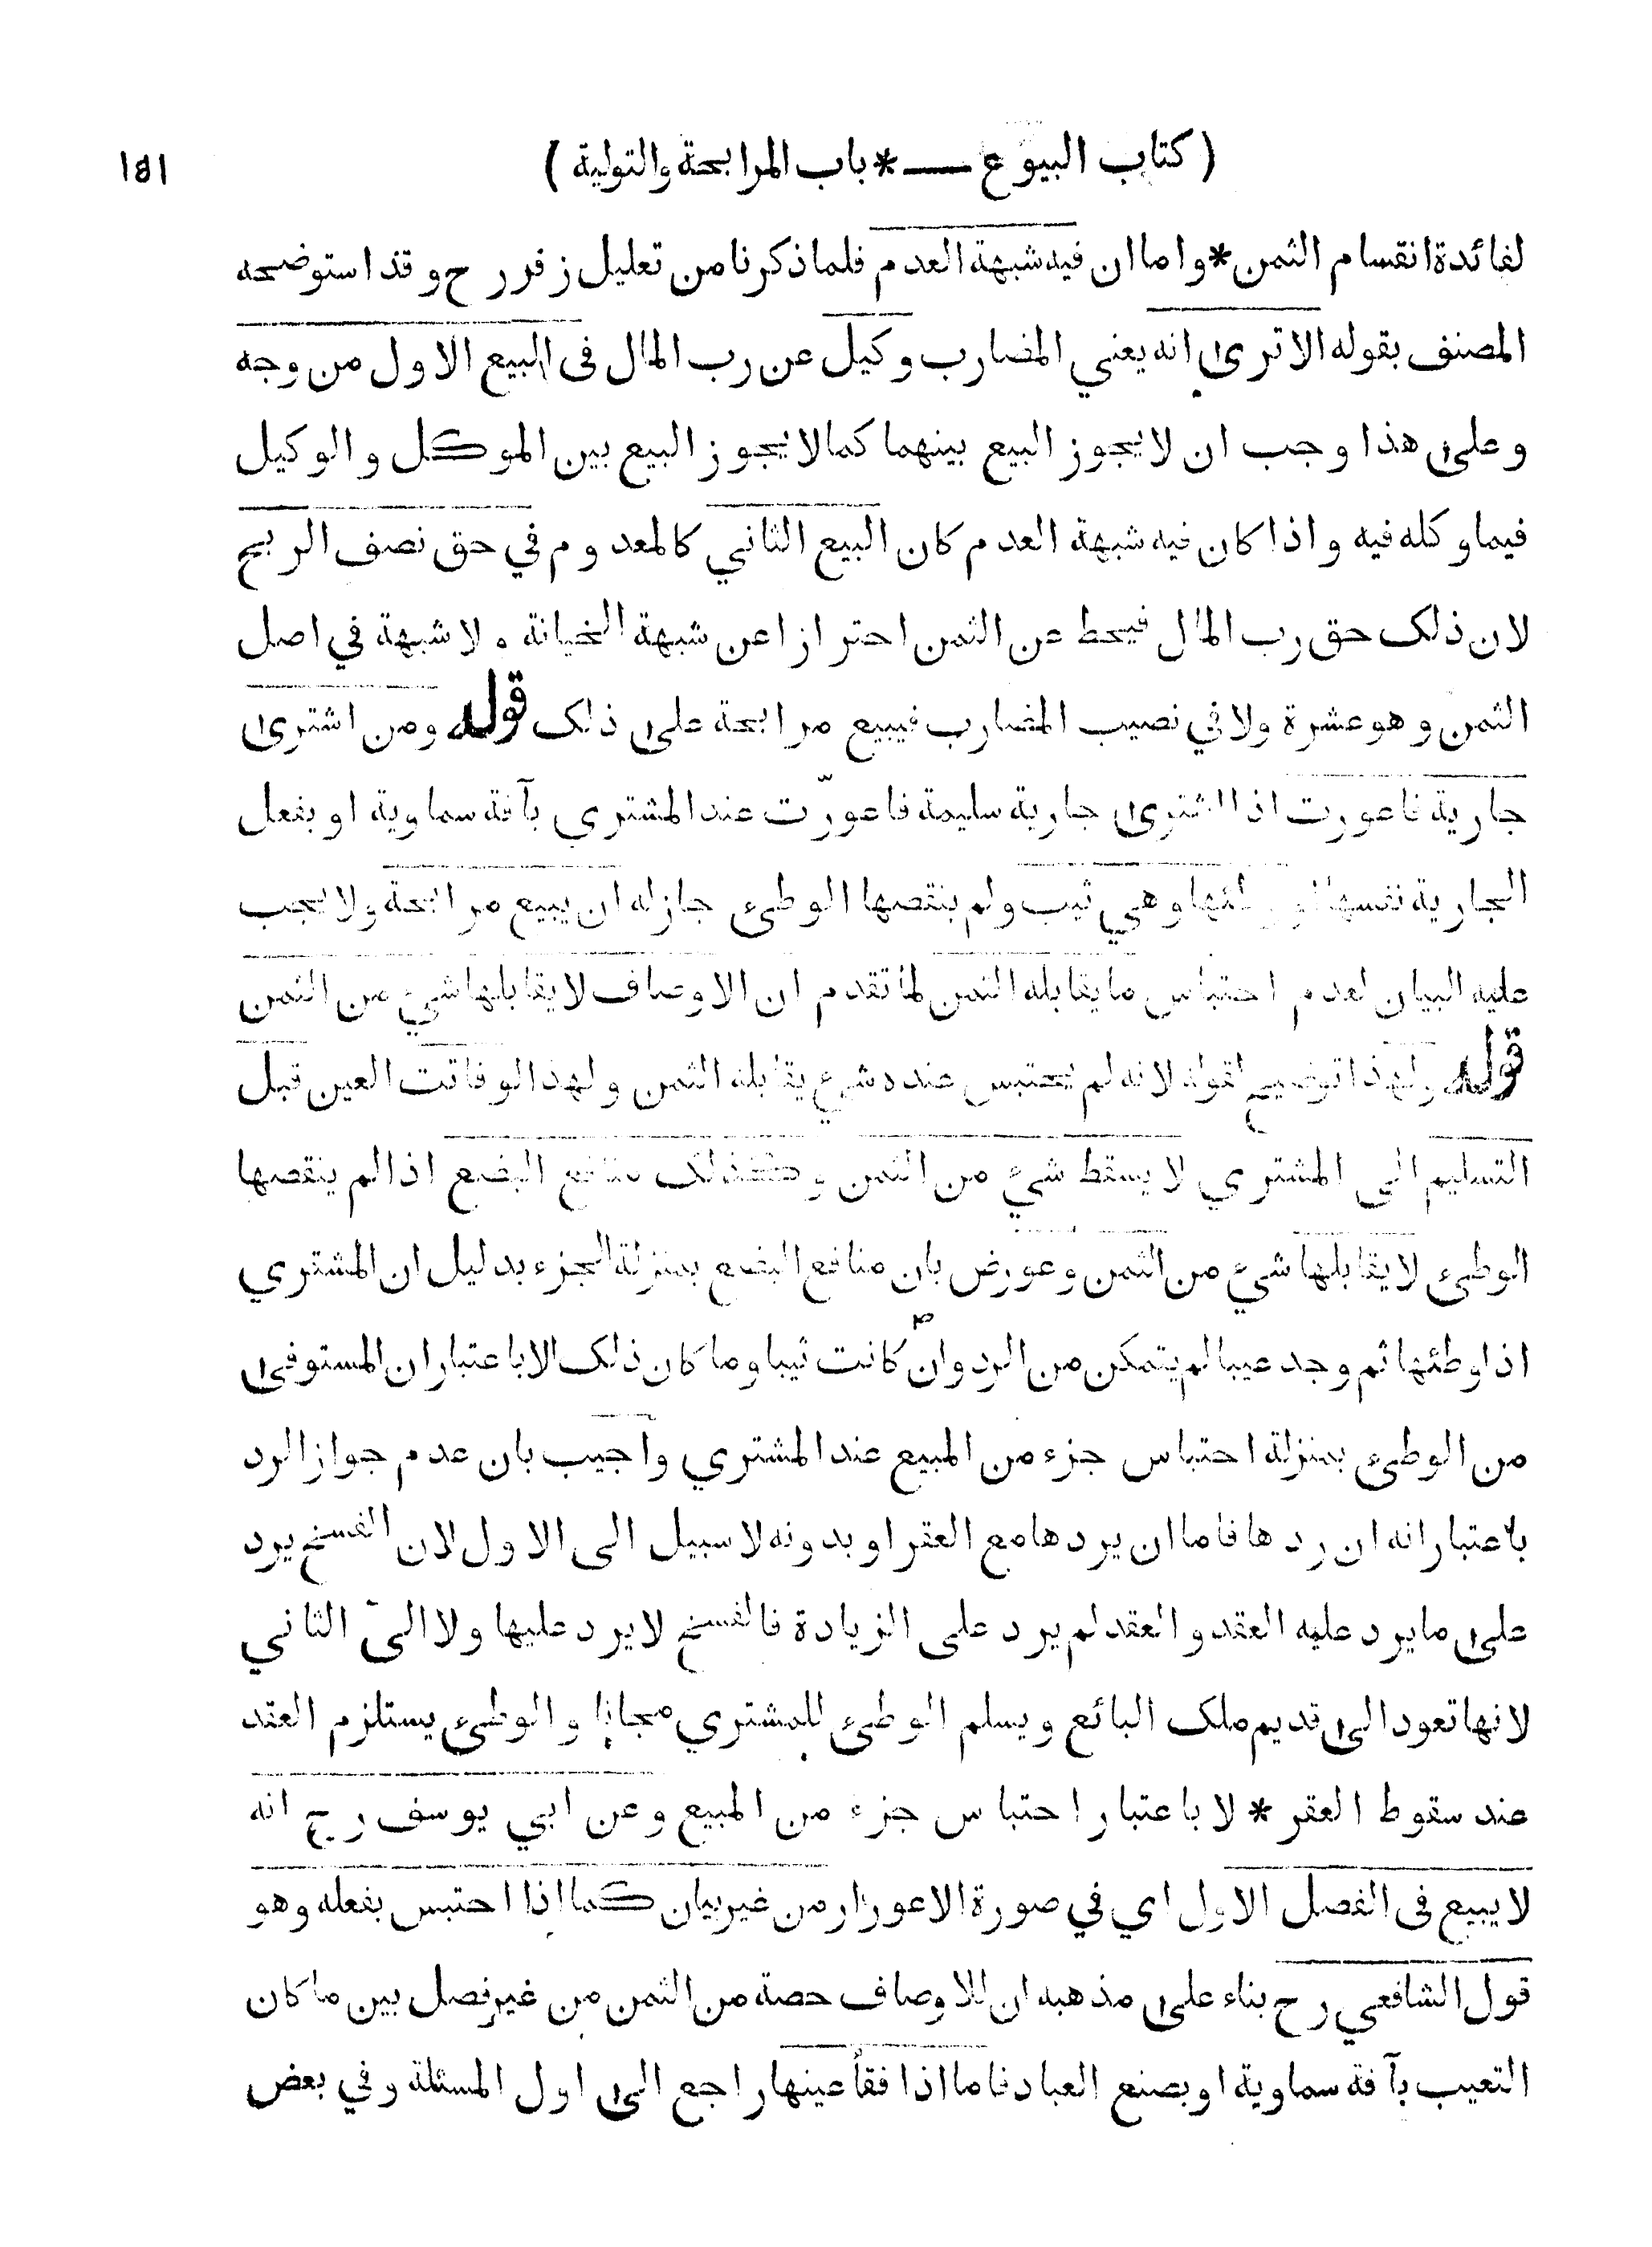 ( كتاب البيوع ــ * باب المرابحة والتولية )
١٥١
لفائدة انقسام الثمن * واما ان فيه شبهة العدم فلما ذكرنا من تعليل زفر رح وقد استوضحه
المصنف بقوله الا ترى انه يعني المضارب وكيل عن رب المال فى البيع الاول من وجه
وعلى هذا وجب ان لا يجوز البيع بينهما كما لا يجوز البيع بين الموكل والوكيل
فيما وكله فيه واذا كان فيه شبهة العدم كان البيع الثاني كالمعدوم في حق نصف الربح
لان ذلك حق رب المال فيحط عن الثمن احترازا عن شبهة الخيانة ولا شبهة في اصل
الثمن وهو عشرة ولا في نصيب المضارب فيبيع مرابحة على ذلك قوله ومن اشترى
جارية فاعورت اذا اشترى جارية سليمة فاعورّت عند المشتري بآفة سماوية او بفعل
الجارية نفسها او وطئها وهي ثيب ولم ينقصها الوطىء جاز له ان يبيع مرابحة ولا يجب
عليه البيان لعدم احتباس ما يقابله الثمن لما تقدم ان الاوصاف لا يقابلها شيء من الثمن
قوله ولهذا توضيح لقوله لانه لم يحتبس عنده شيء يقابله الثمن ولهذا لو فاتت العين قبل
التسليم الى المشتري لا يسقط شيء من الثمن وكذلك منافع البضع اذا لم ينقصها
الوطىء لا يقابلها شيء من الثمن وعورض بان منافع البضع بمنزلة الجزء بدليل ان المشتري
اذا وطئها ثم وجد عيبا لم يتمكن من الرد وان كانت ثيبا وما كان ذلك الا باعتبار ان المستوفى
من الوطىء بمنزلة احتباس جزء من المبيع عند المشتري واجيب بان عدم جواز الرد
باعتبار انه ان ردها فاما ان يردها مع العقر او بدونه لا سبيل الى الاول لان الفسخ يرد
على ما يرد عليه العقد والعقد لم يرد على الزيادة فالفسخ لا يرد عليها ولا الى الثاني
لانها تعود الى قديم ملك البائع ويسلم الوطىء للمشتري مجانا والوطىء يستلزم العقد
عند سقوط العقر * لا باعتبار احتباس جزء من المبيع وعن ابي يوسف رح انه
لا يبيع فى الفصل الاول اي في صورة الاعورار من غير بيان كما اذا احتبس بفعله وهو
قول الشافعي رح بناء على مذهبه ان للاوصاف حصة من الثمن من غير فصل بين ما كان
التعيب بآفة سماوية او بصنع العباد فاما اذا فقأ عينها راجع الى اول المسئلة وفي بعض